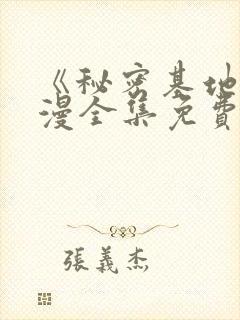 《秘密基地
漫全集免費
張義杰